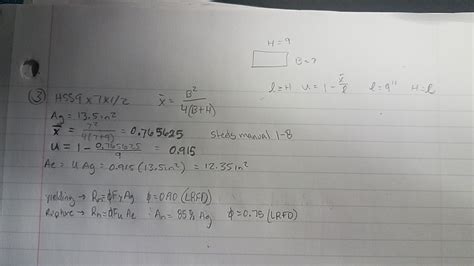 H = 9
B = 7
③ HSS 9 x 7 x 1/2 x̄ = B² / 4(B+H) l = H U = 1 - x̄/l l = 9" H = l
Ag = 13.5 in²
x̄ = 7² / 4(7+9) = 0.765625 steels manual 1-8
U = 1 - 0.765625/9 = 0.915
Ae = U Ag = 0.915 (13.5 in²) = 12.35 in²
yielding → Rn = ϕFyAg ϕ = 0.90 (LRFD)
Rupture → Rn = ϕFuAe An = 85% Ag ϕ = 0.75 (LRFD)